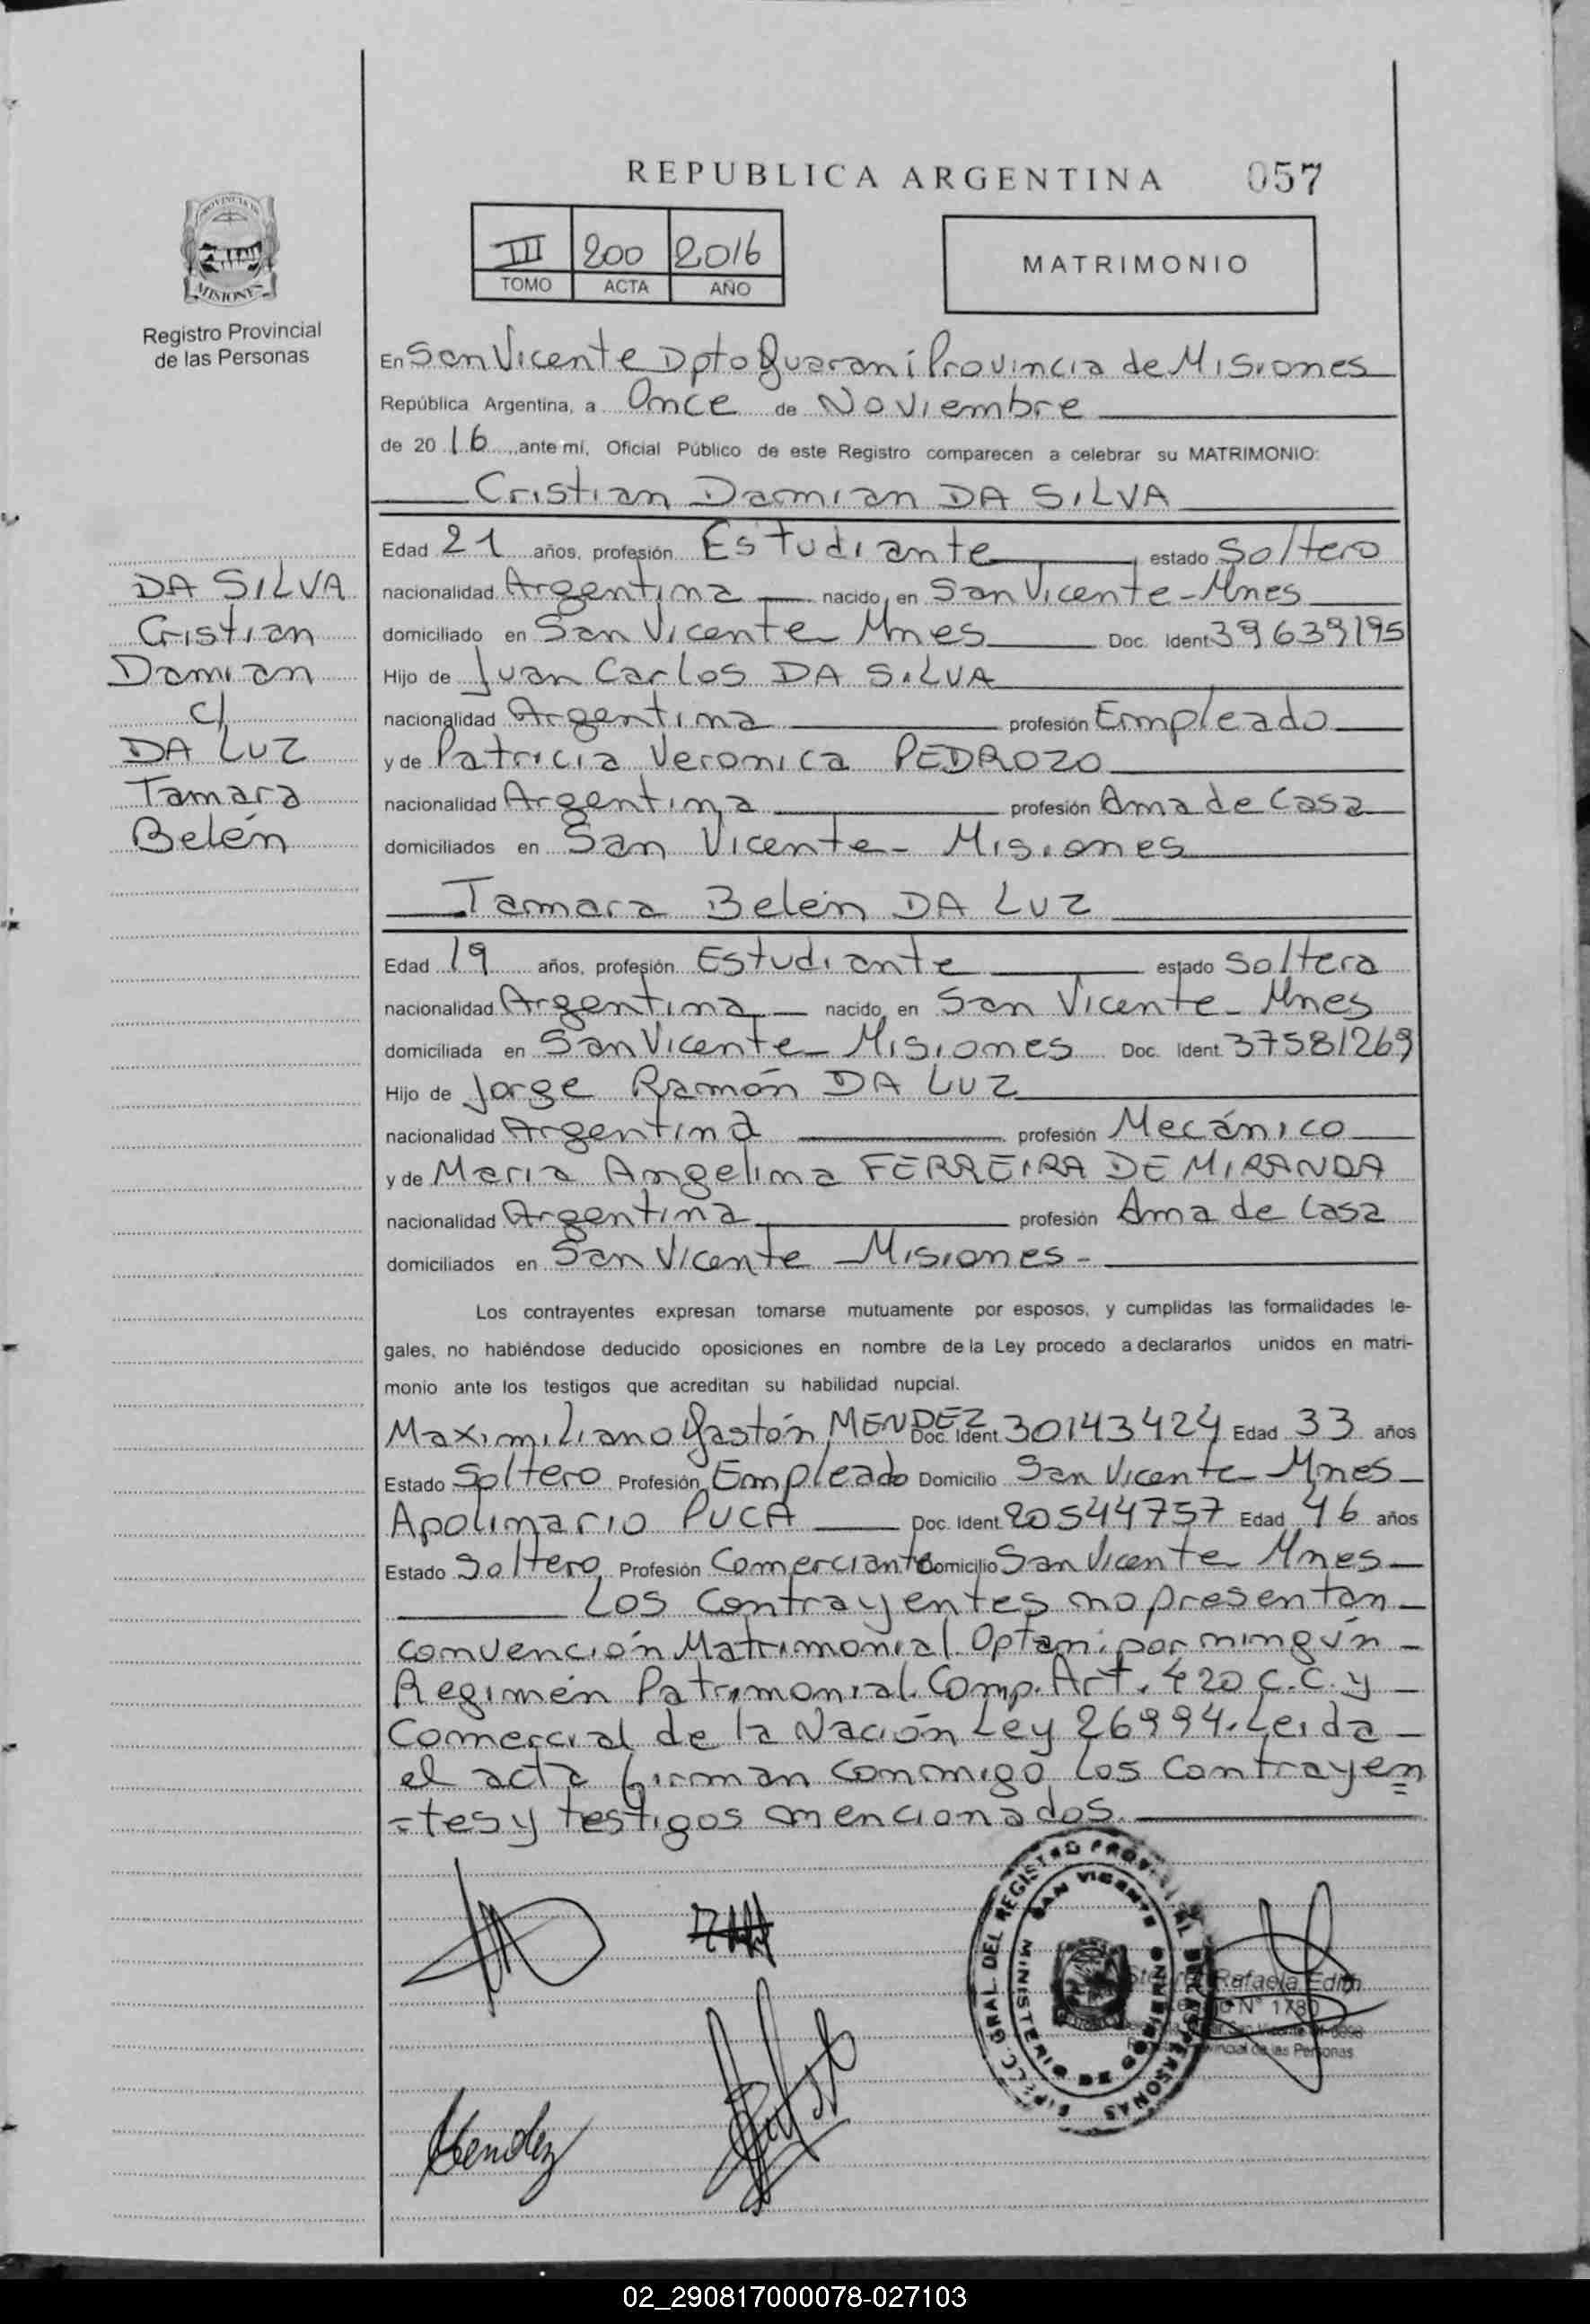 REPUBLICA ARGENTINA 057
III 200 2016
TOMO ACTA AÑO
MATRIMONIO
PROVINCIA DE
MISIONES
Registro Provincial
de las Personas
En San Vicente Dpto Guaraní Provincia de Misiones
República Argentina, a Once de Noviembre
de 2016 ante mí, Oficial Público de este Registro comparecen a celebrar su MATRIMONIO:
Cristian Damian DA SILVA
Edad 21 años, profesión Estudiante estado Soltero
nacionalidad Argentina nacido en San Vicente - Mnes
domiciliado en San Vicente Mnes Doc. Ident 39639195
Hijo de Juan Carlos DA SILVA
nacionalidad Argentina profesión Empleado
y de Patricia Veronica PEDROZO
nacionalidad Argentina profesión Ama de Casa
domiciliados en San Vicente - Misiones
DA SILVA
Cristian
Damian
c/
DA LUZ
Tamara
Belén
Tamara Belén DA LUZ
Edad 19 años, profesión Estudiante estado Soltera
nacionalidad Argentina nacido en San Vicente - Mnes
domiciliada en San Vicente - Misiones Doc. Ident. 37581269
Hijo de Jorge Ramón DA LUZ
nacionalidad Argentina profesión Mecánico
y de Maria Angelina FERREIRA DE MIRANDA
nacionalidad Argentina profesión Ama de Casa
domiciliados en San Vicente Misiones -
Los contrayentes expresan tomarse mutuamente por esposos, y cumplidas las formalidades le-
gales, no habiéndose deducido oposiciones en nombre de la Ley procedo a declararlos unidos en matri-
monio ante los testigos que acreditan su habilidad nupcial.
Maximiliano Gastón MENDEZ Doc. Ident 30143424 Edad 33 años
Estado Soltero Profesión Empleado Domicilio San Vicente - Mnes
Apolinario PUCA Doc. Ident. 20544757 Edad 46 años
Estado Soltero Profesión Comerciante Domicilio San Vicente Mnes
Los Contrayentes no presentan
convención Matrimonial. Optan por ningún
Regimén Patrimonial. Comp. Art. 420 C.C. y
Comercial de la Nación Ley 26994. Leida
el acta firman conmigo los contrayen
=tes y testigos mencionados.
GRAL. DEL REGISTRO PROVINCIAL DE LAS PERSONAS
SAN VICENTE
MINISTERIO DE GOBIERNO
Rafaela Edith
N° 1780
Provincial de las Personas
Mendez
02_290817000078-027103